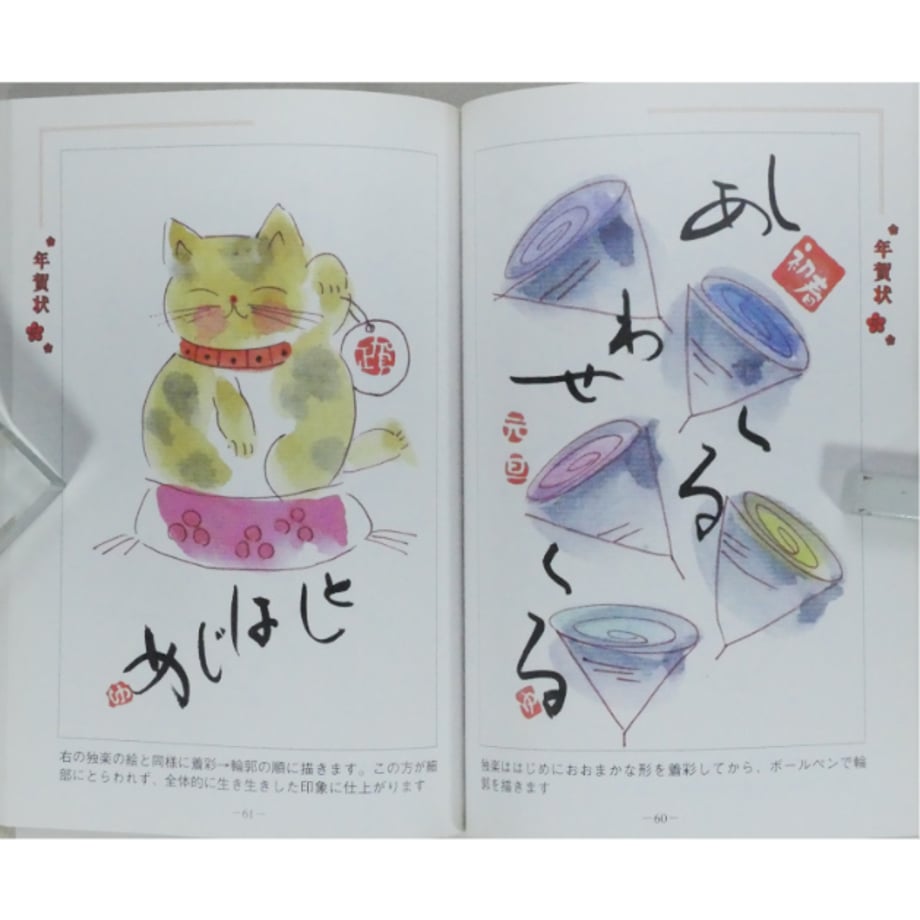 年賀状
しあ
初春
わ
せ
くる
元旦
くる
独楽ははじめにおおまかな形を着彩してから、ボールペンで輪
郭を描きます
—60—
年賀状
としはじめ
右の独楽の絵と同様に着彩→輪郭の順に描きます。この方が細
部にとらわれず、全体的に生き生きした印象に仕上がります
—61—